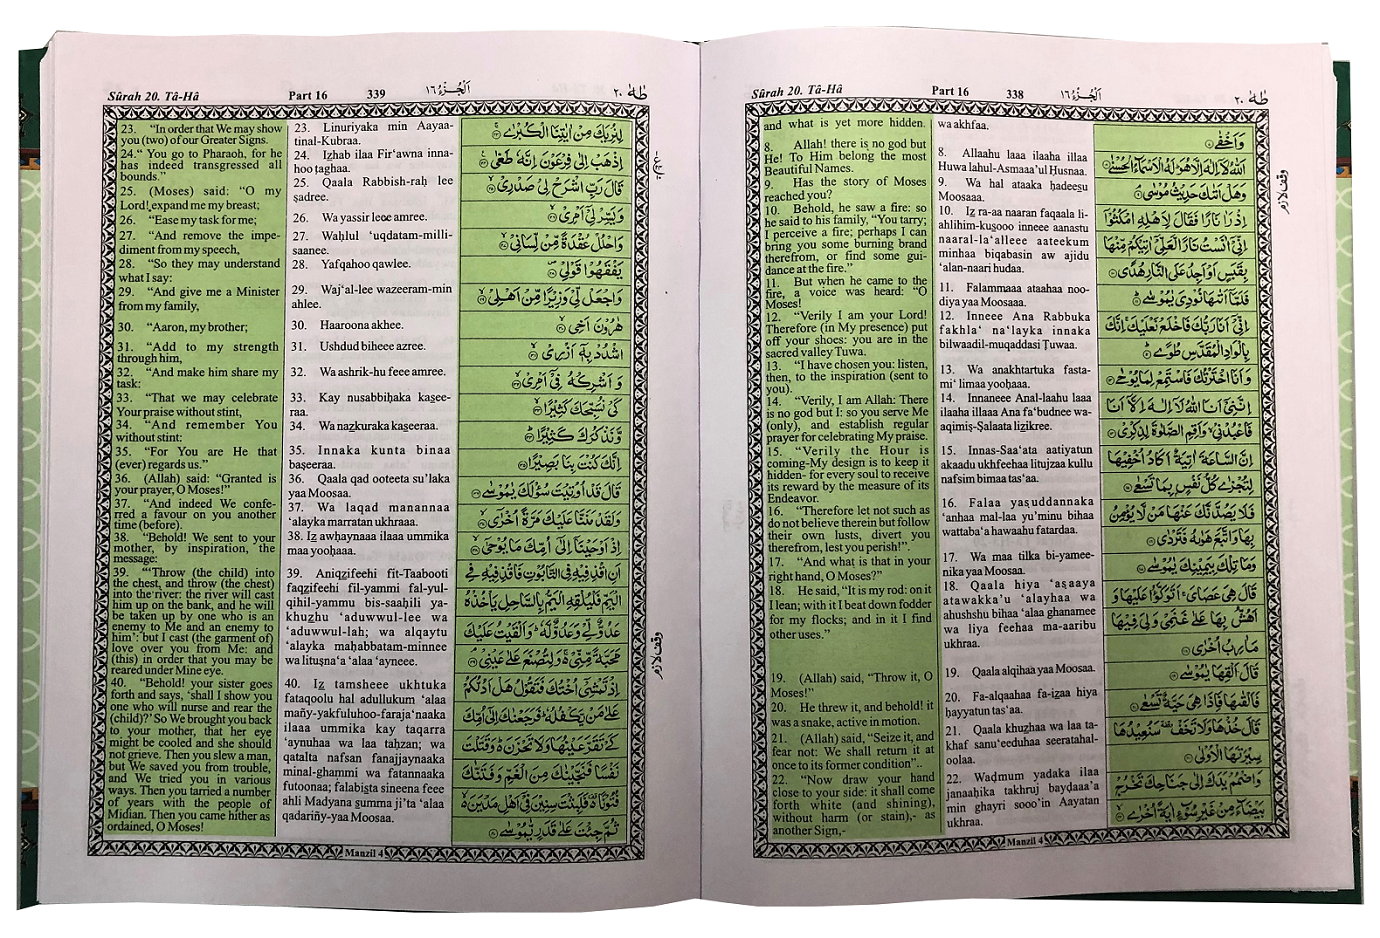 Sûrah 20. Tâ-Hâ
Part 16
338
اَلْجُزْءُ ١٦
طٰهٰ ٢٠
and what is yet more hidden.
8. Allah! there is no god but
He! To Him belong the most
Beautiful Names.
9. Has the story of Moses
reached you?
10. Behold, he saw a fire: so
he said to his family, “You tarry;
I perceive a fire; perhaps I can
bring you some burning brand
therefrom, or find some gui-
dance at the fire.”
11. But when he came to the
fire, a voice was heard: “O
Moses!
12. “Verily I am your Lord!
Therefore (in My presence) put
off your shoes: you are in the
sacred valley Tuwa.
13. “I have chosen you: listen,
then, to the inspiration (sent to
you).
14. “Verily, I am Allah: There
is no god but I: so you serve Me
(only), and establish regular
prayer for celebrating My praise.
15. “Verily the Hour is
coming-My design is to keep it
hidden- for every soul to receive
its reward by the measure of its
Endeavor.
16. “Therefore let not such as
do not believe therein but follow
their own lusts, divert you
therefrom, lest you perish!”.
17. “And what is that in your
right hand, O Moses?”
18. He said, “It is my rod: on it
I lean; with it I beat down fodder
for my flocks; and in it I find
other uses.”
19. (Allah) said, “Throw it, O
Moses!”
20. He threw it, and behold! it
was a snake, active in motion.
21. (Allah) said, “Seize it, and
fear not: We shall return it at
once to its former condition”..
22. “Now draw your hand
close to your side: it shall come
forth white (and shining),
without harm (or stain),- as
another Sign,-
wa akhfaa.
8. Allaahu laaa ilaaha illaa
Huwa lahul-Asmaaa’ul Ḥusnaa.
9. Wa hal ataaka ḥadeesu
Moosaaa.
10. Iz̲ ra-aa naaran faqaala li-
ahlihim-kus̱ooo inneee aanastu
naaral-la‘alleee aateekum
minhaa biqabasin aw ajidu
‘alan-naari hudaa.
11. Falammaaa ataahaa noo-
diya yaa Moosaaa.
12. Inneee Ana Rabbuka
fakhla‘ na‘layka innaka
bilwaadil-muqaddasi Ṭuwaa.
13. Wa anakhtartuka fasta-
mi‘ limaa yooḥaaa.
14. Innaneee Anal-laahu laaa
ilaaha illaaa Ana fa‘budnee wa-
aqimiṣ-Ṣalaata liz̲ikree.
15. Innas-Saa‘ata aatiyatun
akaadu ukhfeehaa litujzaa kullu
nafsim bimaa tas‘aa.
16. Falaa yaṣuddannaka
‘anhaa mal-laa yu’minu bihaa
wattaba‘a hawaahu fatardaa.
17. Wa maa tilka bi-yamee-
nika yaa Moosaaa.
18. Qaala hiya ‘aṣaaya
atawakka’u ‘alayhaa wa
ahushshu bihaa ‘alaa ghanamee
wa liya feehaa ma-aaribu
ukhraa.
19. Qaala alqihaa yaa Moosaa.
20. Fa-alqaahaa fa-iz̲aa hiya
ḥayyatun tas‘aa.
21. Qaala khuz̲haa wa laa ta-
khaf sanu‘eeduhaa seeratahal-
oolaa.
22. Waḍmum yadaka ilaa
janaaḥika takhruj bayḍaaa’a
min ghayri sooo’in Aayatan
ukhraa.
وَاَخْفٰى
اَللّٰهُ لَاۤ اِلٰهَ اِلَّا هُوَ لَهُ الْاَسْمَآءُ الْحُسْنٰى
وَهَلْ اَتٰىكَ حَدِيْثُ مُوْسٰى
اِذْ رَاٰ نَارًا فَقَالَ لِاَهْلِهِ امْكُثُوْۤا
اِنِّيْۤ اٰنَسْتُ نَارًا لَّعَلِّيْۤ اٰتِيْكُمْ مِّنْهَا
بِقَبَسٍ اَوْ اَجِدُ عَلَى النَّارِ هُدًى
فَلَمَّاۤ اَتٰىهَا نُوْدِيَ يٰمُوْسٰى
اِنِّيْۤ اَنَا رَبُّكَ فَاخْلَعْ نَعْلَيْكَ ۚ اِنَّكَ
بِالْوَادِ الْمُقَدَّسِ طُوًى
وَاَنَا اخْتَرْتُكَ فَاسْتَمِعْ لِمَا يُوْحٰى
اِنَّنِيْۤ اَنَا اللّٰهُ لَاۤ اِلٰهَ اِلَّاۤ اَنَا
فَاعْبُدْنِيْ ۙ وَاَقِمِ الصَّلٰوةَ لِذِكْرِيْ
اِنَّ السَّاعَةَ اٰتِيَةٌ اَكَادُ اُخْفِيْهَا
لِتُجْزٰى كُلُّ نَفْسٍۢ بِمَا تَسْعٰى
فَلَا يَصُدَّنَّكَ عَنْهَا مَنْ لَّا يُؤْمِنُ
بِهَا وَاتَّبَعَ هَوٰىهُ فَتَرْدٰى
وَمَا تِلْكَ بِيَمِيْنِكَ يٰمُوْسٰى
قَالَ هِيَ عَصَايَ ۚ اَتَوَكَّؤُا عَلَيْهَا وَ
اَهُشُّ بِهَا عَلٰى غَنَمِيْ وَلِيَ فِيْهَا
مَاٰرِبُ اُخْرٰى
قَالَ اَلْقِهَا يٰمُوْسٰى
فَاَلْقٰىهَا فَاِذَا هِيَ حَيَّةٌ تَسْعٰى
قَالَ خُذْهَا وَلَا تَخَفْ ۫ سَنُعِيْدُهَا
سِيْرَتَهَا الْاُوْلٰى
وَاضْمُمْ يَدَكَ اِلٰى جَنَاحِكَ تَخْرُجْ
بَيْضَآءَ مِنْ غَيْرِ سُوْٓءٍ اٰيَةً اُخْرٰى
وقف لازم
Manzil 4
Sûrah 20. Tâ-Hâ
Part 16
339
اَلْجُزْءُ ١٦
طٰهٰ ٢٠
23. “In order that We may show
you (two) of our Greater Signs.
24.“ You go to Pharaoh, for he
has indeed transgressed all
bounds.”
25. (Moses) said: “O my
Lord! expand me my breast;
26. “Ease my task for me;
27. “And remove the impe-
diment from my speech,
28. “So they may understand
what I say:
29. “And give me a Minister
from my family,
30. “Aaron, my brother;
31. “Add to my strength
through him,
32. “And make him share my
task:
33. “That we may celebrate
Your praise without stint,
34. “And remember You
without stint:
35. “For You are He that
(ever) regards us.”
36. (Allah) said: “Granted is
your prayer, O Moses!”
37. “And indeed We confe-
rred a favour on you another
time (before).
38. “Behold! We sent to your
mother, by inspiration, the
message:
39. “‘Throw (the child) into
the chest, and throw (the chest)
into the river: the river will cast
him up on the bank, and he will
be taken up by one who is an
enemy to Me and an enemy to
him’: but I cast (the garment of)
love over you from Me: and
(this) in order that you may be
reared under Mine eye.
40. “Behold! your sister goes
forth and says, ‘shall I show you
one who will nurse and rear the
(child)?’ So We brought you back
to your mother, that her eye
might be cooled and she should
not grieve. Then you slew a man,
but We saved you from trouble,
and We tried you in various
ways. Then you tarried a number
of years with the people of
Midian. Then you came hither as
ordained, O Moses!
23. Linuriyaka min Aayaa-
tinal-Kubraa.
24. Iz̲hab ilaa Fir‘awna inna-
hoo ṭaghaa.
25. Qaala Rabbish-raḥ lee
ṣadree.
26. Wa yassir leee amree.
27. Waḥlul ‘uqdatam-milli-
saanee.
28. Yafqahoo qawlee.
29. Waj‘al-lee wazeeram-min
ahlee.
30. Haaroona akhee.
31. Ushdud biheee azree.
32. Wa ashrik-hu feee amree.
33. Kay nusabbiḥaka kas̱ee-
raa.
34. Wa naz̲kuraka kas̱eeraa.
35. Innaka kunta binaa
baṣeeraa.
36. Qaala qad ooteeta su’laka
yaa Moosaa.
37. Wa laqad manannaa
‘alayka marratan ukhraaa.
38. Iz̲ awḥaynaaa ilaaa ummika
maa yooḥaaa.
39. Aniqz̲ifeehi fit-Taabooti
faqz̲ifeehi fil-yammi fal-yul-
qihil-yammu bis-saaḥili ya-
khuz̲hu ‘aduwwul-lee wa
‘aduwwul-lah; wa alqaytu
‘alayka maḥabbatam-minnee
wa lituṣna‘a ‘alaa ‘aynee.
40. Iz̲ tamsheee ukhtuka
fataqoolu hal adullukum ‘alaa
mañy-yakfuluhoo-faraja‘naaka
ilaaa ummika kay taqarra
‘aynuhaa wa laa taḥzan; wa
qatalta nafsan fanajjaynaaka
minal-ghammi wa fatannaaka
futoonaa; falabis̱ta sineena feee
ahli Madyana s̱umma ji’ta ‘alaa
qadariñy-yaa Moosaa.
لِنُرِيَكَ مِنْ اٰيٰتِنَا الْكُبْرٰى
اِذْهَبْ اِلٰى فِرْعَوْنَ اِنَّهٗ طَغٰى
قَالَ رَبِّ اشْرَحْ لِيْ صَدْرِيْ
وَيَسِّرْ لِيْۤ اَمْرِيْ
وَاحْلُلْ عُقْدَةً مِّنْ لِّسَانِيْ
يَفْقَهُوْا قَوْلِيْ
وَاجْعَلْ لِّيْ وَزِيْرًا مِّنْ اَهْلِيْ
هٰرُوْنَ اَخِي
اشْدُدْ بِهٖۤ اَزْرِيْ
وَاَشْرِكْهُ فِيْۤ اَمْرِيْ
كَيْ نُسَبِّحَكَ كَثِيْرًا
وَّنَذْكُرَكَ كَثِيْرًا
اِنَّكَ كُنْتَ بِنَا بَصِيْرًا
قَالَ قَدْ اُوْتِيْتَ سُؤْلَكَ يٰمُوْسٰى
وَلَقَدْ مَنَنَّا عَلَيْكَ مَرَّةً اُخْرٰى
اِذْ اَوْحَيْنَاۤ اِلٰۤى اُمِّكَ مَا يُوْحٰۤى
اَنِ اقْذِفِيْهِ فِي التَّابُوْتِ فَاقْذِفِيْهِ فِي
الْيَمِّ فَلْيُلْقِهِ الْيَمُّ بِالسَّاحِلِ يَاْخُذْهُ
عَدُوٌّ لِّيْ وَعَدُوٌّ لَّهٗ ۚ وَاَلْقَيْتُ عَلَيْكَ
مَحَبَّةً مِّنِّيْ ۬ وَلِتُصْنَعَ عَلٰى عَيْنِيْ
اِذْ تَمْشِيْۤ اُخْتُكَ فَتَقُوْلُ هَلْ اَدُلُّكُمْ
عَلٰى مَنْ يَّكْفُلُهٗ ۚ فَرَجَعْنٰكَ اِلٰۤى اُمِّكَ
كَيْ تَقَرَّ عَيْنُهَا وَلَا تَحْزَنَ ۬ وَقَتَلْتَ
نَفْسًا فَنَجَّيْنٰكَ مِنَ الْغَمِّ وَفَتَنّٰكَ
فُتُوْنًا ۬ فَلَبِثْتَ سِنِيْنَ فِيْۤ اَهْلِ مَدْيَنَ ۙ
ثُمَّ جِئْتَ عَلٰى قَدَرٍ يّٰمُوْسٰى
وقف لازم
Manzil 4